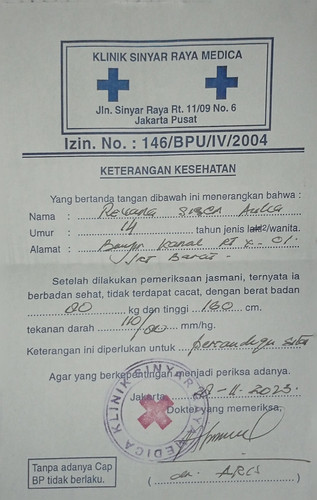 KLINIK SINYAR RAYA MEDICA
Jln. Sinyar Raya Rt. 11/09 No. 6
Jakarta Pusat
Izin. No. : 146/BPU/IV/2004
KETERANGAN KESEHATAN
Yang bertanda tangan dibawah ini menerangkan bahwa :
Nama :
Umur : 14 tahun jenis laki2/wanita.
Alamat : Kanal RT
Barat
Setelah dilakukan pemeriksaan jasmani, ternyata ia
berbadan sehat, tidak terdapat cacat, dengan berat badan
kg dan tinggi 160 cm.
tekanan darah 110/ mm/hg.
Keterangan ini diperlukan untuk :
Agar yang berkepentingan menjadi periksa adanya.
Jakarta, 28-11-2023
Dokter yang memeriksa,
KLINIK SINYAR RAYA MEDICA
Tanpa adanya Cap
BP tidak berlaku.
( dr. ARIS )